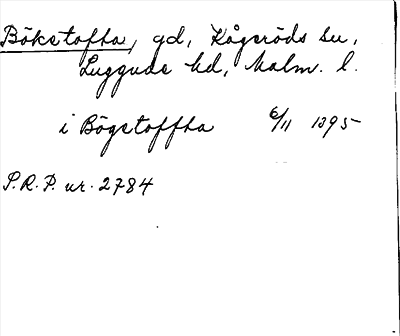 Bökstofta, gd, Kågeröds sn,
Luggude hd, Malm. l.
i Bögstoffha 6/11 1395
S.R.P. nr. 2784